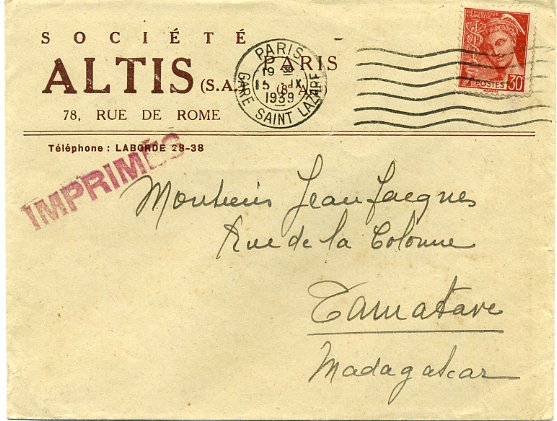 SOCIÉTÉ
ALTIS (S.A.) PARIS (8e A.)
78, RUE DE ROME
Téléphone : LABORDE 28-38
PARIS
19
15 IX
1939
GARE SAINT LAZARE
POSTES 30
IMPRIMÉS
Monsieur Jean Jacques
Rue de la Colonne
Tamatave
Madagascar